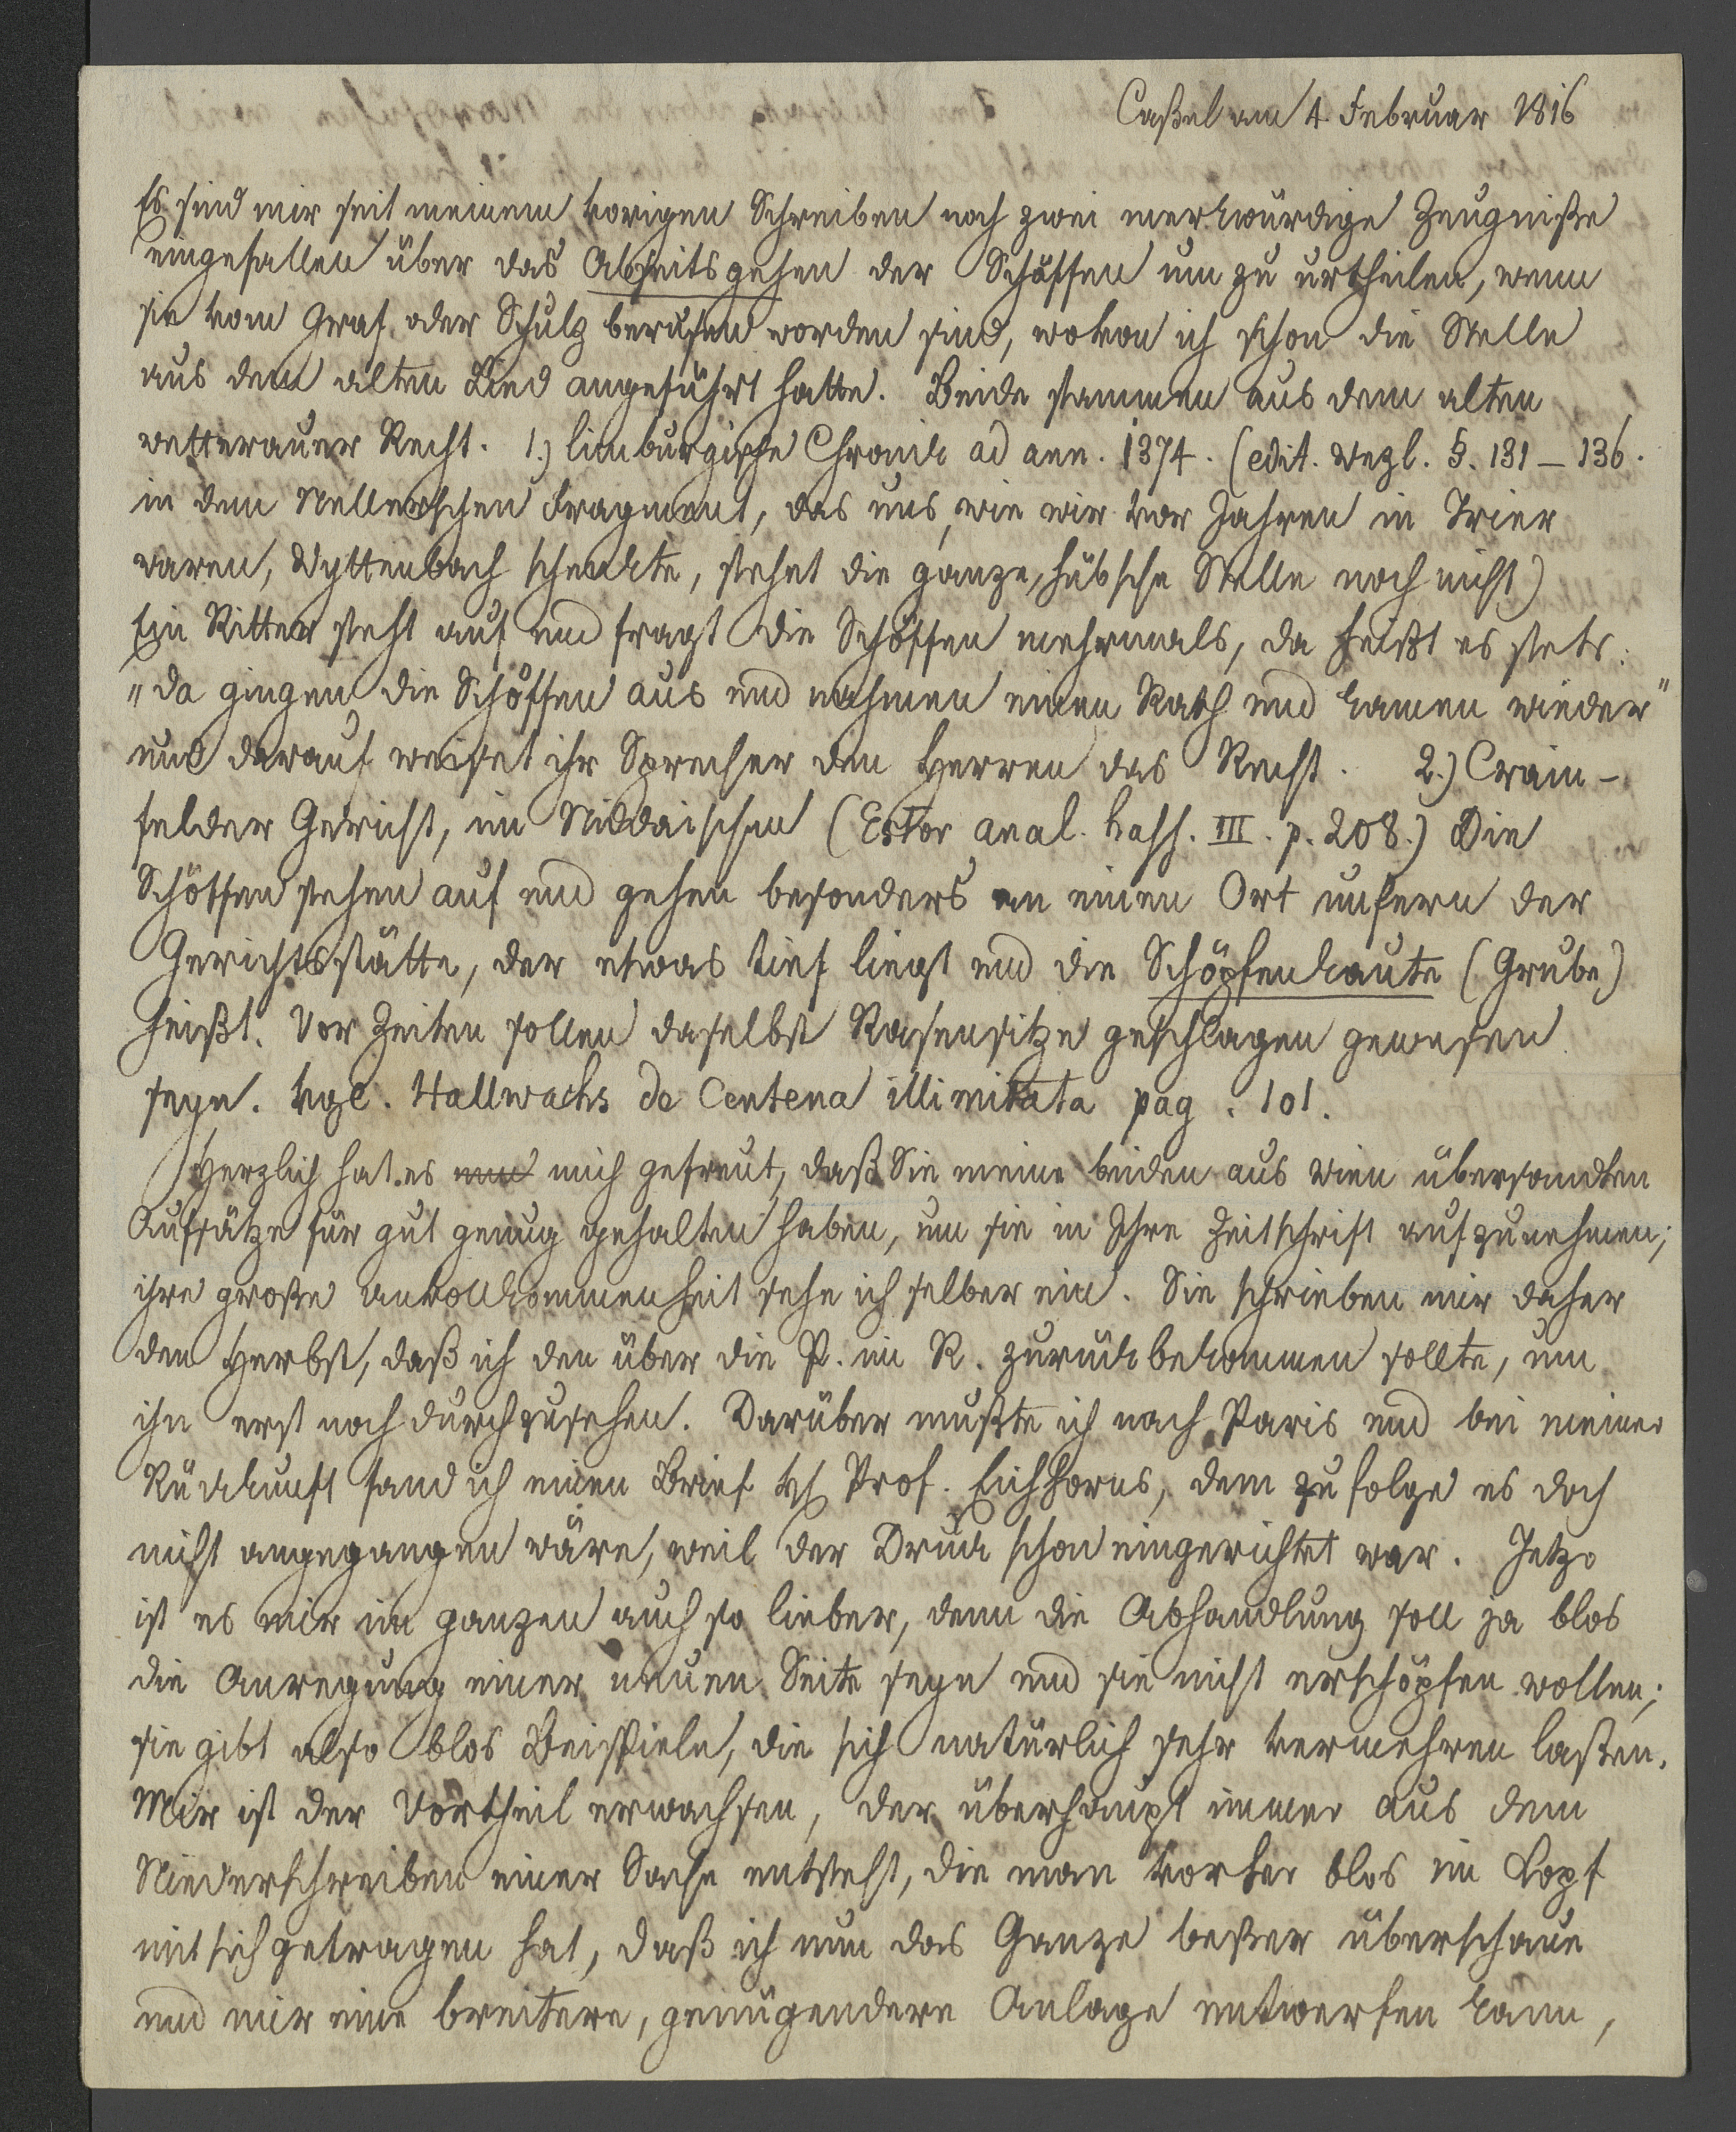 Caßel am 4. Februar 1816
Es sind mir seit meinem vorigen Schreiben noch zwei merkwürdige Zeugniße
eingefallen über das Abseitsgehen der Schöffen um zu urtheilen, wenn
sie vom Graf oder Schulz berufen worden sind, wovon ich schon die Stelle
aus dem alten Lied angeführt hatte. Beide stammen aus dem alten
wetterauer Recht. 1.) limburgische Chronik ad ann. 1374. (edit. Wezl. §. 131–136.
in dem Nellerschen Fragment, das uns, wie wir vor Jahren in Trier
waren, Wyttenbach schenkte, stehet die ganze, hübsche Stelle noch nicht)
Ein Ritter steht auf und fragt die Schöffen mehrmals, da heißt es stets:
„da gingen die Schöffen aus und nahmen einen Rath und kamen wieder"
und darauf weiset ihr Sprecher den Herren das Recht. 2.) Crain-
felder Gericht, im Niddaischen (Estor anal. hass. III. p. 208.) Die
Schöffen stehen auf und gehen besonders an einen Ort unfern der
Gerichtsstätte, der etwas tief liegt und die Schöpfenkaute (Grube)
heißt. Vor Zeiten sollen daselbst Rasensitze geschlagen gewesen
seyn. vgl. Hallwachs de Centena illimitata pag. 101.
Herzlich hat es mich gefreut, daß Sie meine beiden aus Wien übersandten
Aufsätze für gut genug gehalten haben, um sie in Ihre Zeitschrift aufzunehmen;
ihre große Unvollkommenheit sehe ich selber ein. Sie schrieben mir daher
den Herbst, daß ich den über die P. im R. zurückbekommen sollte, um
ihn erst noch durchzusehen. Darüber mußte ich nach Paris und bei meiner
Rückkunft fand ich einen Brief Hr Prof. Eichhorns, dem zufolge es doch
nicht angegangen wäre, weil der Druck schon eingerichtet war. Jetzo
ist es mir im ganzen auch so lieber, denn die Abhandlung soll ja blos
die Anregung einer neuen Seite seyn und sie nicht erschöpfen wollen;
sie gibt also blos Beispiele, die sich natürlich sehr vermehren laßen.
Mir ist der Vortheil erwachsen, der überhaupt immer aus dem
Niederschreiben einer Sache entsteht, die man vorher blos im Kopf
mit sich getragen hat, daß ich nun das Ganze beßer überschaue
und mir eine breitere, genügendere Anlage entwerfen kann,